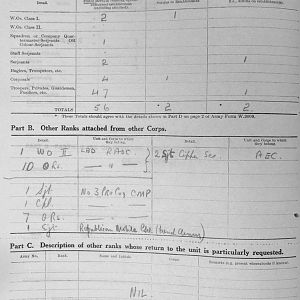 W.Os. Class I. 2 1
W.Os. Class II.
Squadron or Company Quar-
termaster-Serjeants OR
Colour-Serjeants
Staff Serjeants
Serjeants 2 1
Buglers, Trumpeters, etc.
Corporals 4 1
Troopers, Privates, Guardsmen,
Fusiliers, etc. 47 1
TOTALS 56 2 2
* These Totals should agree with the details shown in Part D on page 2 of Army Form W.3009.
Part B. Other Ranks attached from other Corps.
Detail Unit and Corps to which they belong Detail Unit and Corps to which they belong
1 WO II RAOC 2 Sgts Cipher Sec. AEC
10 ORs. "
1 Sgt No 3 Pro Coy CMP
1 Cpl
7 ORs. "
1 Sgt
Part C. Description of other ranks whose return to the unit is particularly requested.
Army No. Rank Name and Initials Corps
NIL.